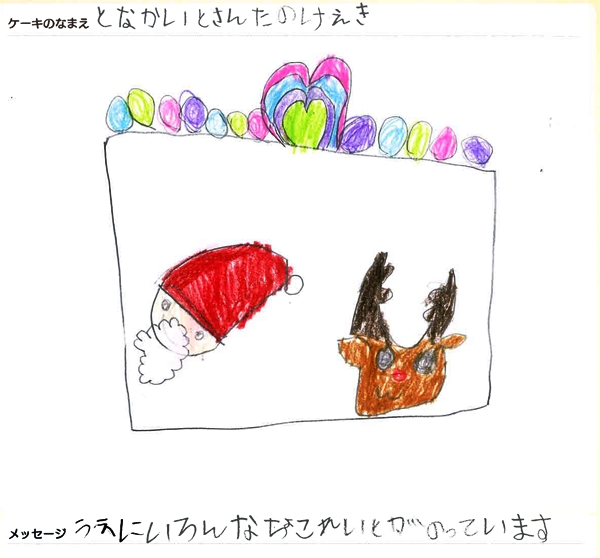 ケーキのなまえ となかいとさんたのけえき
メッセージ うえにいろんなちょこれいとがのっています